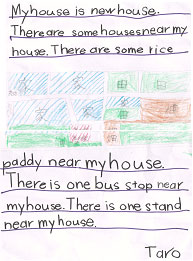 My house is new house.
There are some houses near my
house. There are some rice
paddy near my house.
There is one bus stop near
my house. There is one stand
near my house.
Taro